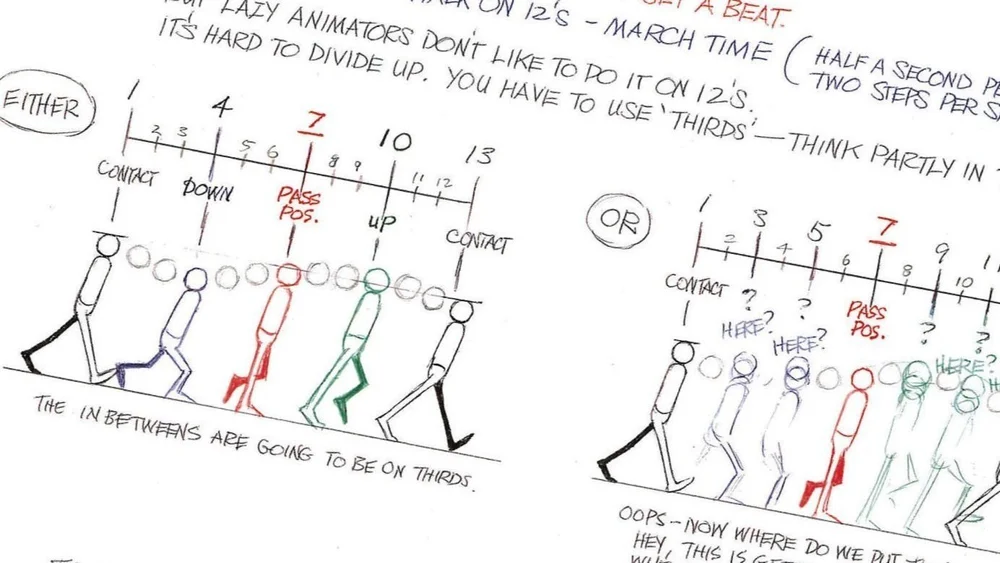 GET A BEAT.
WALK ON 12'S – MARCH TIME (HALF A SECOND
TWO STEPS PER
LAZY ANIMATORS DON'T LIKE TO DO IT ON 12'S.
IT'S HARD TO DIVIDE UP. YOU HAVE TO USE 'THIRDS' — THINK PARTLY IN
EITHER
1 2 3 4 5 6 7 8 9 10 11 12 13
CONTACT DOWN PASS POS. UP CONTACT
THE INBETWEENS ARE GOING TO BE ON THIRDS.
OR
1 2 3 4 5 6 7 8 9 10
CONTACT ? ? PASS POS. ? ?
HERE? HERE? HERE?
OOPS – NOW WHERE DO WE PUT
HEY, THIS IS